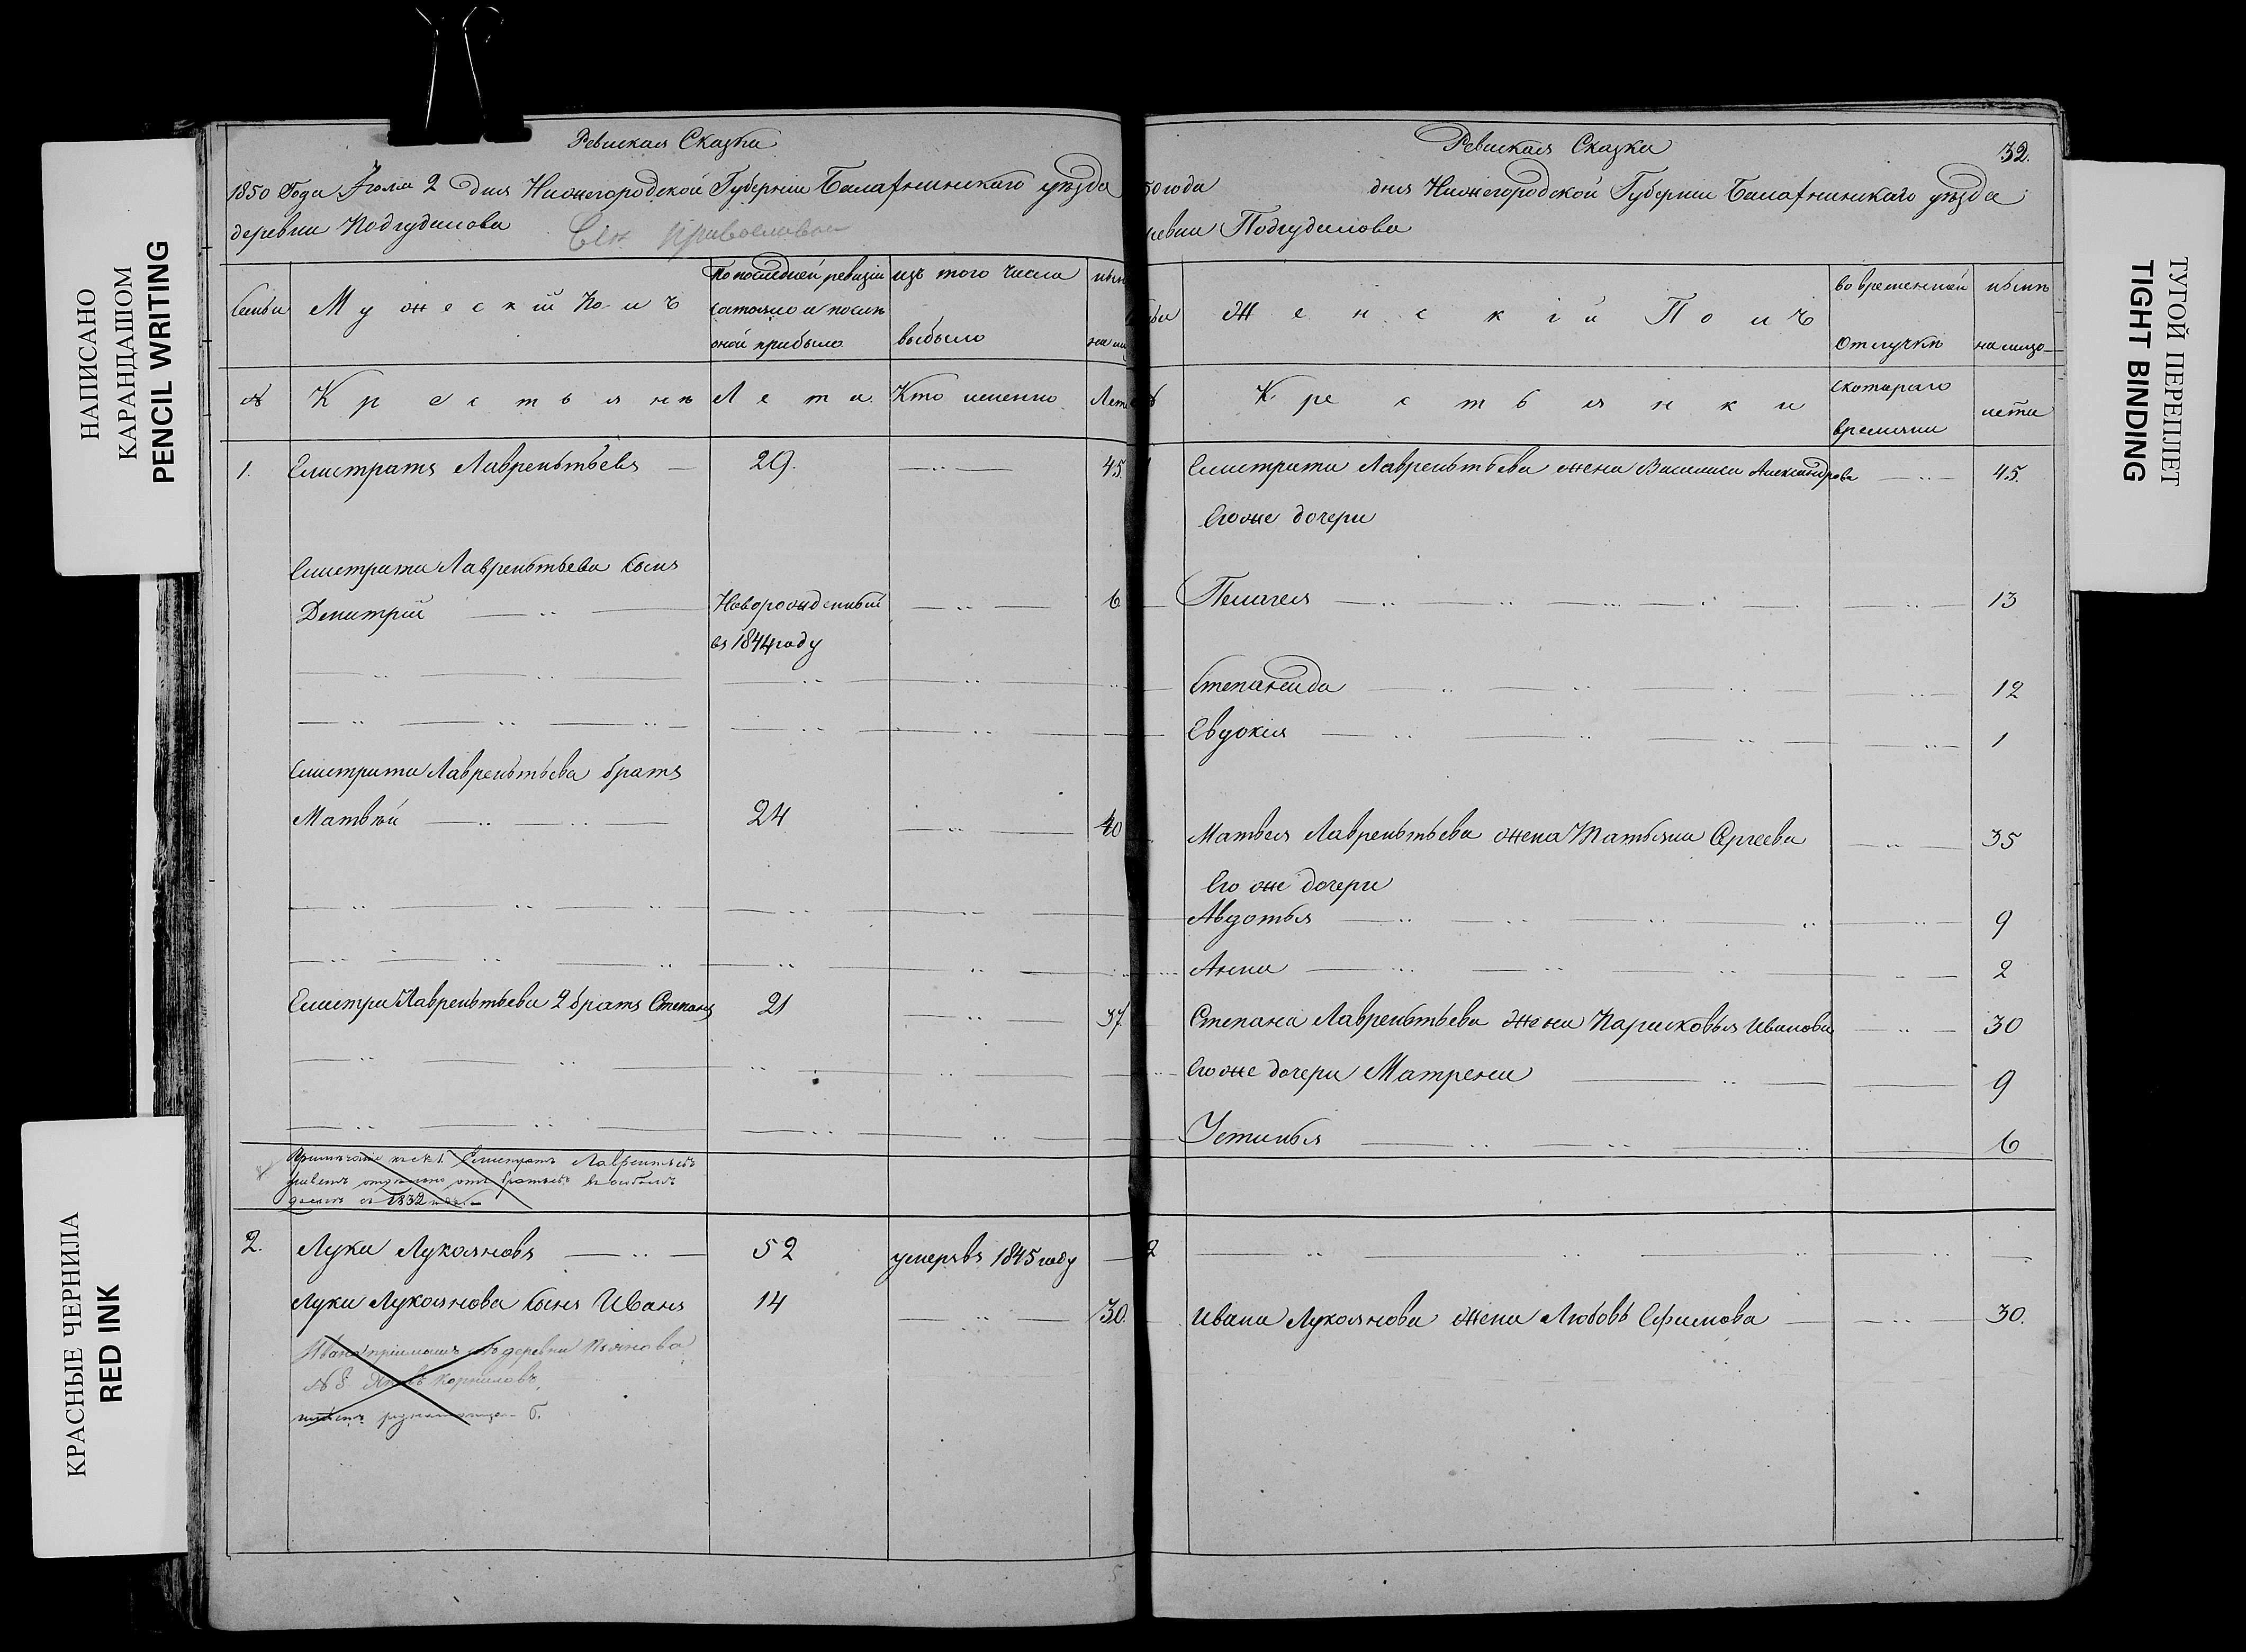 НАПИСАНО
КАРАНДАШОМ
PENCIL WRITING
КРАСНЫЕ ЧЕРНИЛА
RED INK
Ревиская Сказка
1850 Года Июля 2 дня Нижегородской Губерніи Балахнинскаго уѣзда
деревни Подгуданова
Семьи
Мужескій Полъ
По последней ревизіи состояло и после оной прибыло
изъ того числа выбыло
ныне на ли
№
Крестьяне
Лета
Кто именно
Лета
1. Елистратъ Лаврентьевъ 29. 45.
Елистрата Лаврентьева сынъ
Дмитрій Новорожденный 6
въ 1844 году
Елистрата Лаврентьева братъ
Матвѣй 24 40
Елистра Лаврентьева 2 братъ Степанъ 21 37.
Примѣчаніе къ № 1. Елистратъ Лаврентьевъ
живетъ отдельно отъ братьевъ въ особомъ
домѣ съ 1832
2. Лука Лукояновъ 52 умеръ въ 1845 году
Луки Лукоянова сынъ Иванъ 14 30.
Ивана деревни
№ 8 Корниловъ
Ревиская Сказка
32.
50 года дня Нижегородской Губерніи Балахнинскаго уѣзда
ревни Подгуданова
ьи
Женскій Полъ
во временной отлучке
ныне налицо
№
Крестьянки
скотораго времяни
лета
1 Елистрата Лаврентьева жена Василиса Александрова 45.
Его же дочери
Пелагея 13
Степанида 12
Евдокія 1
Матвея Лаврентьева жена Татьяна Сергеева 35
Его же дочери
Авдотья 9
Анна 2
Степана Лаврентьева жена Парасковья Иванова 30
Его же дочери Матрена 9
Устинья 6
2
Ивана Лукоянова жена Любовь Ефимова 30.
ТУГОЙ ПЕРЕПЛЕТ
TIGHT BINDING